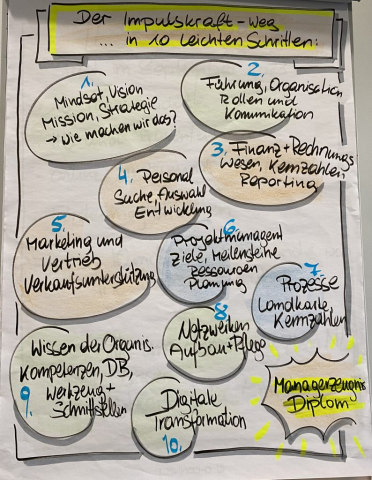 Der Impulskraft-Weg
... in 10 leichten Schritten:
1.
Mindset, Vision
Mission, Strategie
→ Wie machen wir das?
2.
Führung, Organisation
Rollen und
Komunikation
3. Finanz + Rechnungs
wesen, Kennzahlen
Reporting
4. Personal
Suche, Auswahl
Entwicklung
5.
Marketing und
Vertrieb
Verkaufsunterstützung
6.
Projektmanagent
Ziele, Meilensteine
Ressourcen
Planung
7.
Prozesse
Landkarte,
Kennzahlen
8.
Netzwerken
Aufbau + Pflege
Wissen der Organis.
Kompetenzen, DB,
9. Werkzeug +
Schnittstellen
Digitale
Transformation
10.
Managerzeugnis
Diplom